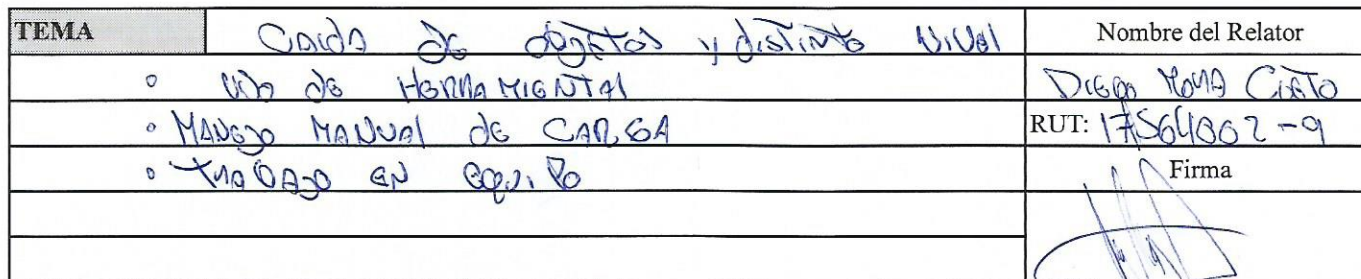 TEMA Caida de objetos y distinto nivel Nombre del Relator
° Uso de HERRAMIENTAS Diego
° MANEJO MANUAL de CARGA RUT: 17564002-9
° TRABAJO EN EQUIPO Firma